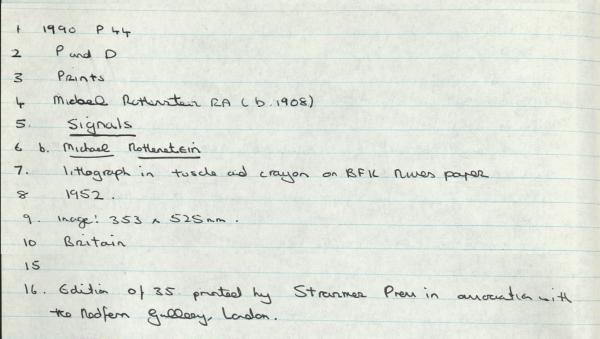 1 1990 P 44
2 P and D
3 Prints
4 Michael Rothenstein RA (b.1908)
5. Signals
6 b. Michael Rothenstein
7. lithograph in tusche and crayon on BFK Rives paper
8 1952.
9. image: 353 x 525mm.
10 Britain
15
16. Edition of 35 printed by Press in association with
the Redfern Gallery, London.